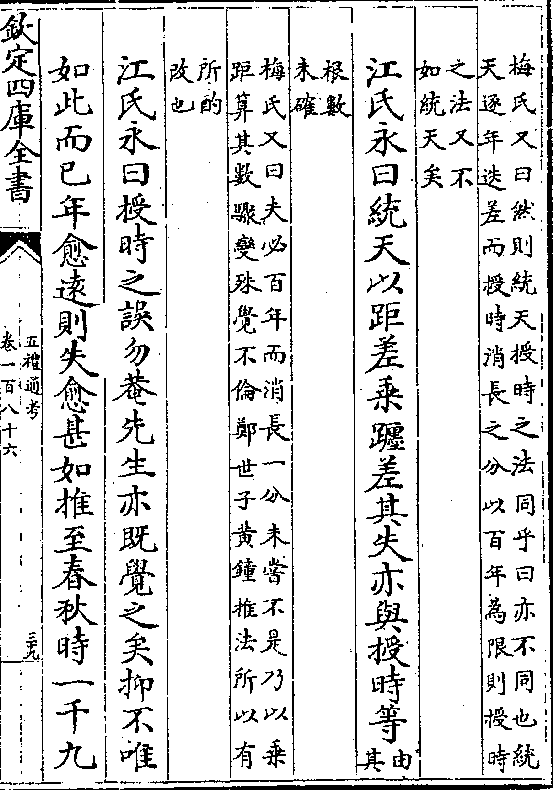 梅氏又曰然則統天授時之法同乎曰亦不同也統
天逐年迭差而授時消長之分以百年為限則授時
之法又不
如統天矣
江氏永曰統天以距差乗躔差其失亦與授時等
由其
根數
未確
梅氏又曰夫必百年而消長一分未嘗不是乃以乗
距算其數驟變殊覺不倫鄭世子黃鍾推法所以有
所酌
改也
江氏永曰授時之誤勿菴先生亦既覺之矣抑不唯
如此而已年愈逺則失愈甚如推至春秋時一千九
欽定四庫全書
五禮通考
卷一百八十六
三九